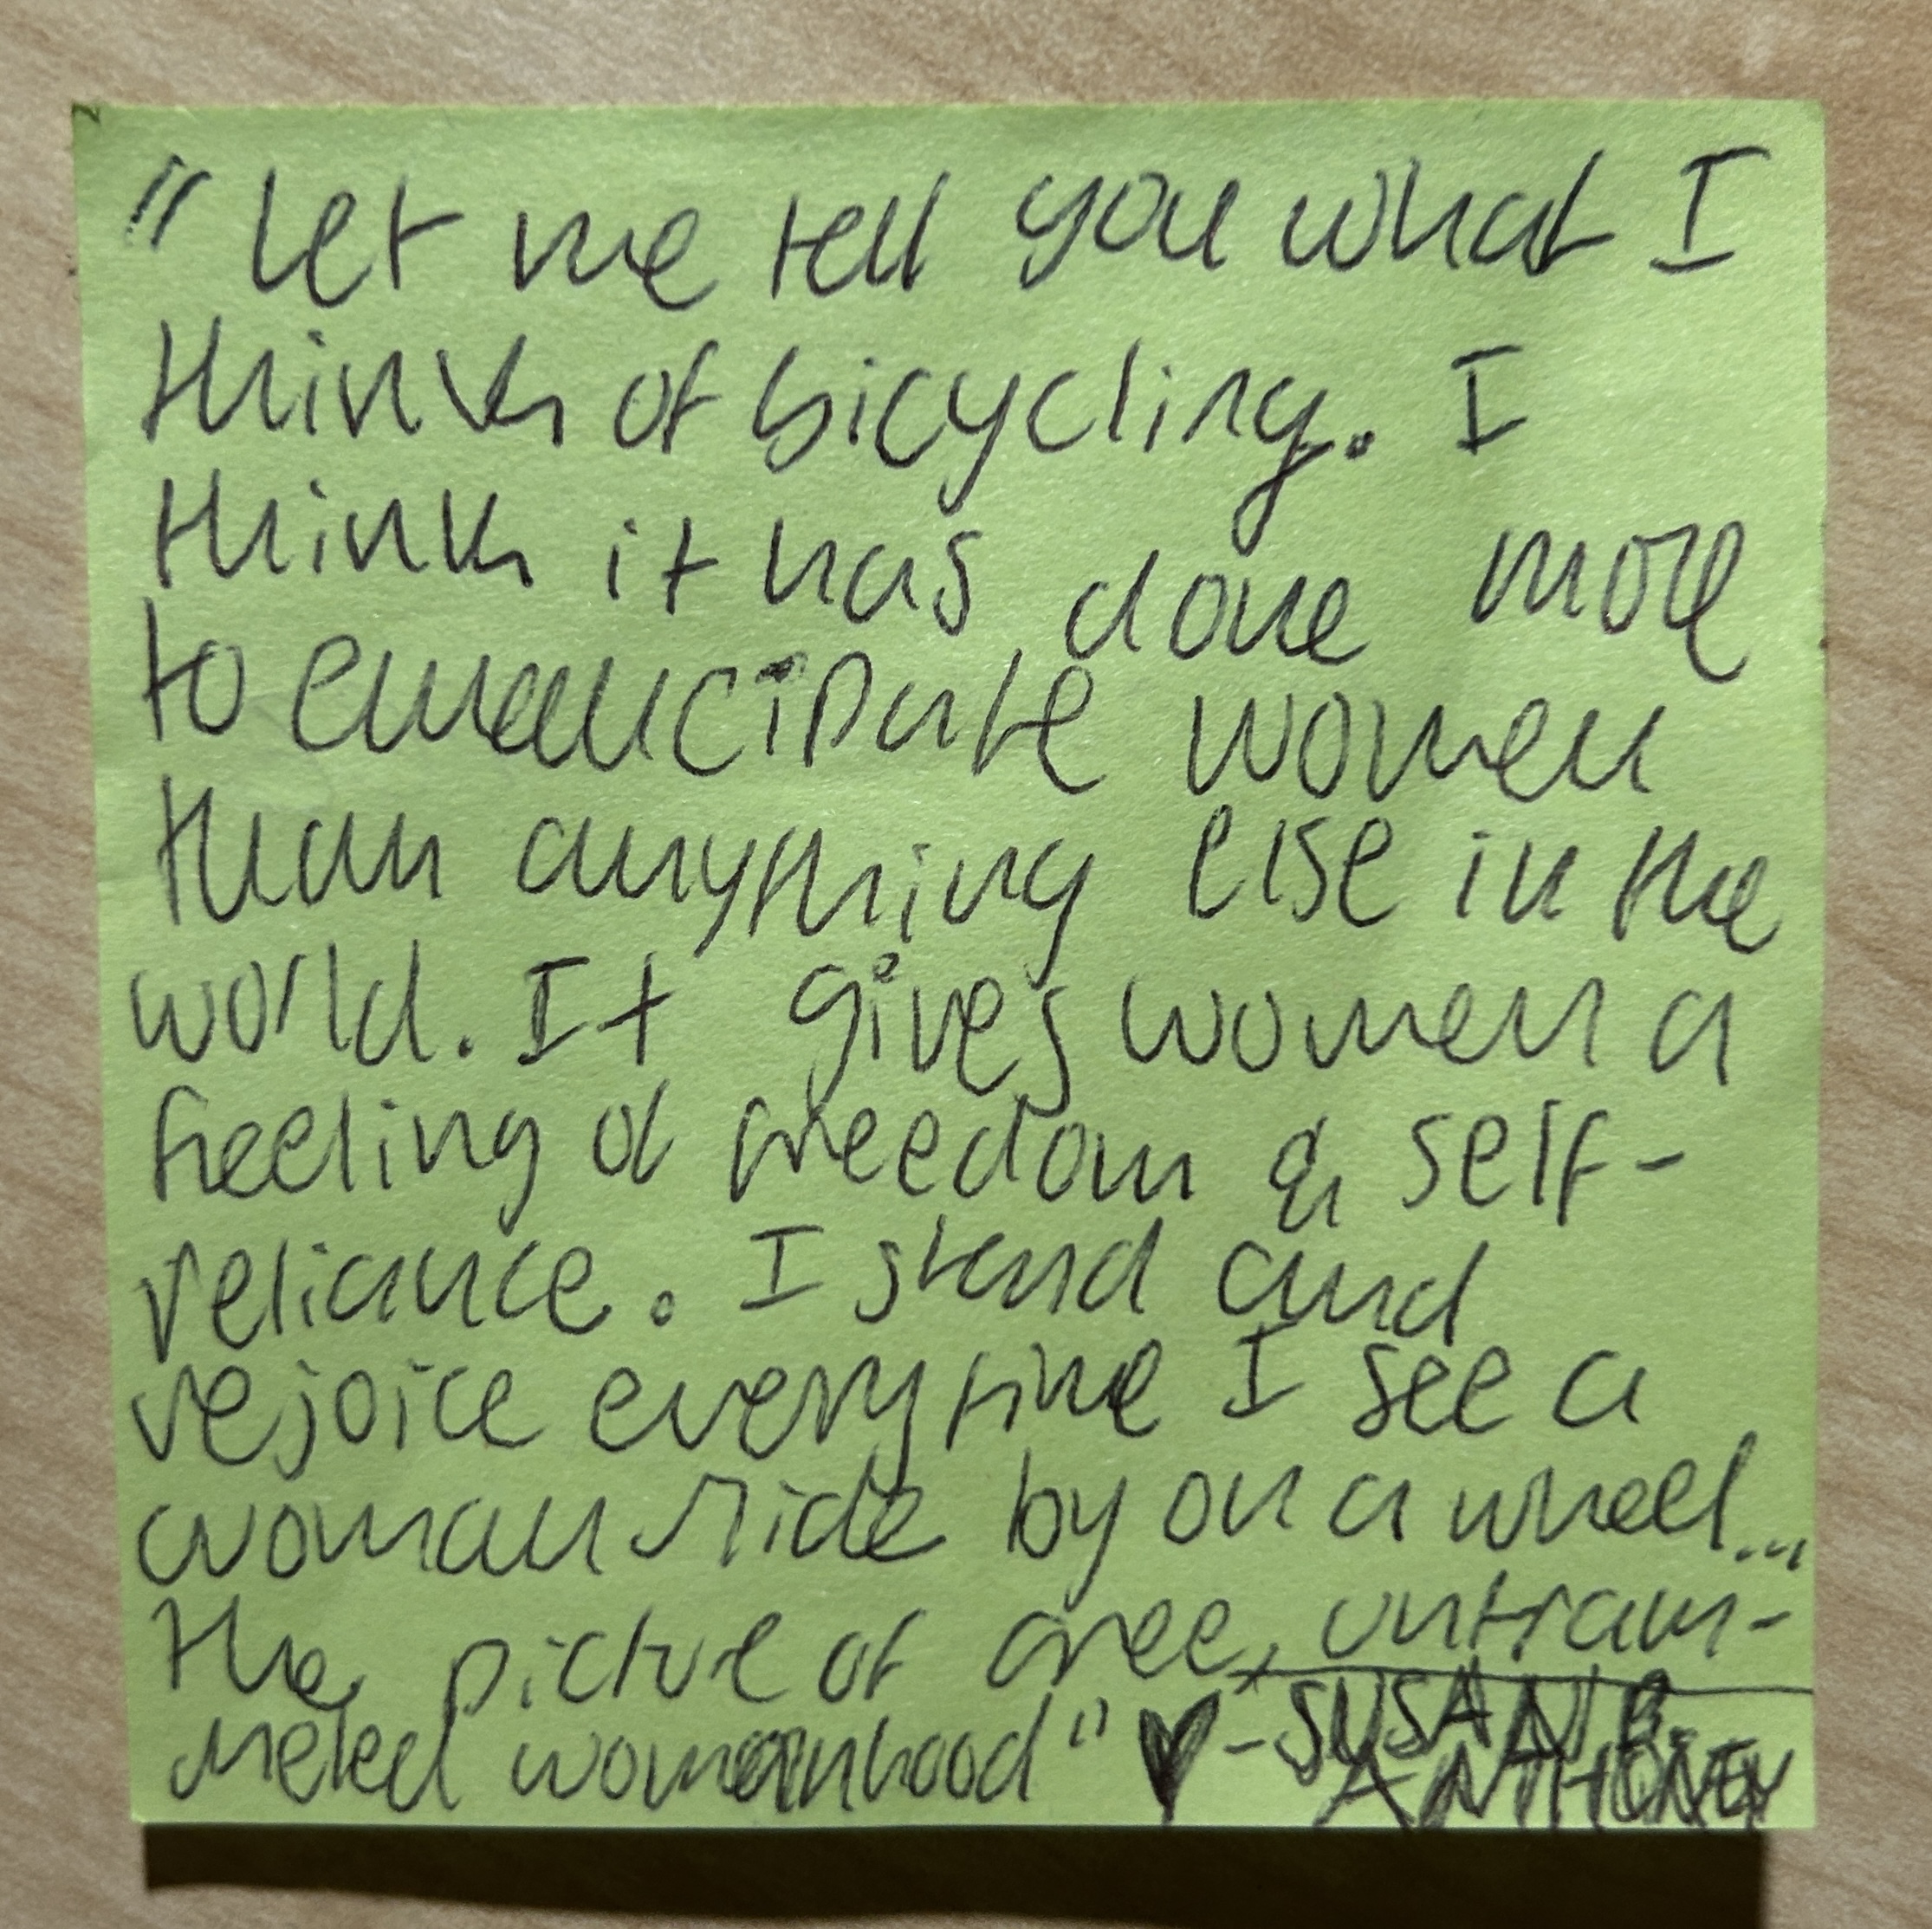 "Let me tell you what I
think of bicycling. I
think it has done more
to emancipate women
than anything else in the
world. It gives women a
feeling of freedom & self-
reliance. I stand and
rejoice everytime I see a
woman ride by on a wheel...
the picture of free, untram-
meled womanhood" ♥ -SUSAN B.
ANTHONEY